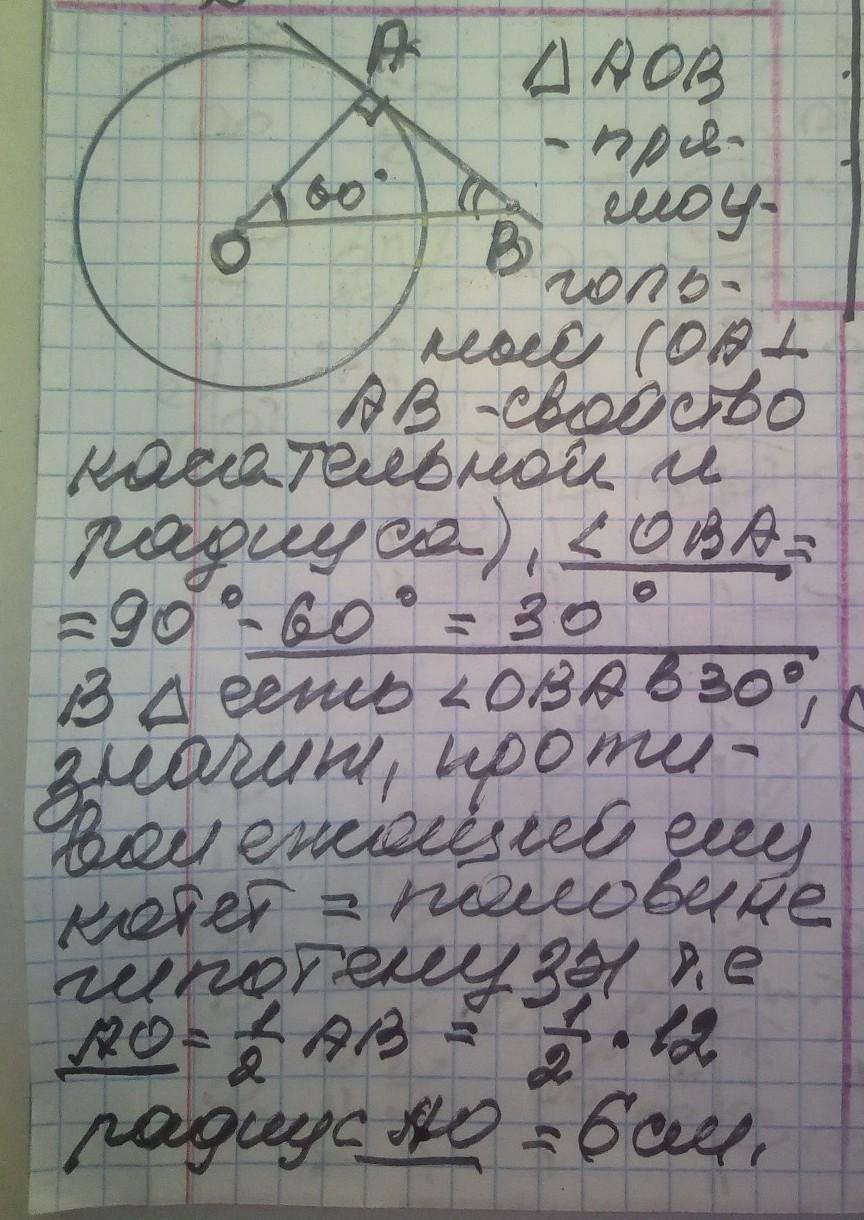 A
60°
O
B
△ AOB
- пря-
моу-
голь-
ный (OA⊥
AB - свойство
касательной и
радиуса), <OBA=
=90°-60° = 30°
В △ есть <OBA в 30°,
значит, проти-
волежащий ему
катет = половине
гипотенузы т.е
AO = 1/2 AB = 1/2 · 12
радиус AO = 6 см.